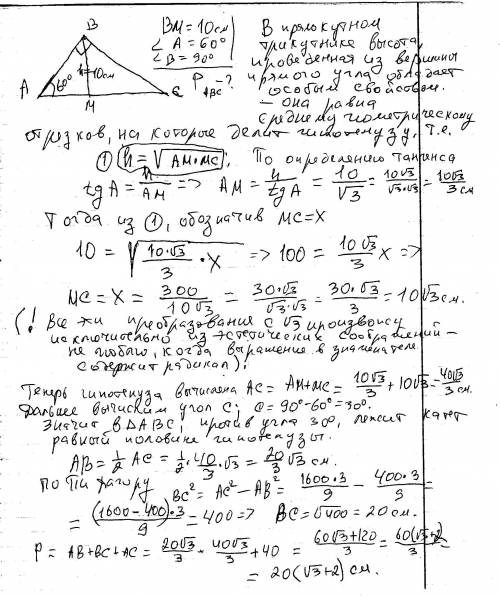 B
BM = 10см
∠A = 60°
∠B = 90°
P ABC - ?
h=10см
60°
A
M
C
В прямокутном
трикутнике высота,
проведенная из вершины
прямого угла обладает
особым свойством.
- она равна
среднему геометрическому
отрезков, на которые делит гипотенузу, т.е.
① h = √AM·MC. По определению тангенса
tg A = h/AM => AM = h/tgA = 10/√3 = 10√3/√3·√3 = 10√3/3 см
Тогда из ①, обозначив MC=X
10 = √10·√3/3 · X => 100 = 10√3/3 X =>
MC = X = 300/10√3 = 30·√3/√3·√3 = 30·√3/3 = 10√3 см.
(! Все эти преобразования с √3 произвожу
исключительно из эстетических соображений -
не люблю, когда выражение в знаменателе
содержит радикал).
Теперь гипотенуза вычислена AC = AM+MC = 10√3/3 + 10√3 = 40√3/3 см.
Дальше вычислим угол C; C = 90°-60° = 30°.
Значит в ΔABC, против угла 30°, лежит катет
равный половине гипотенузы.
AB = 1/2 AC = 1/2 · 40/3 · √3 = 20/3 √3 см.
По Пифагору BC² = AC² - AB² = 1600·3/9 - 400·3/9 =
= (1600-400)·3/9 = 400 => BC = √400 = 20 см.
P = AB+BC+AC = 20√3/3 + 40√3/3 + 40 = 60√3+120/3 = 60(√3+2)/3 =
= 20(√3+2) см.